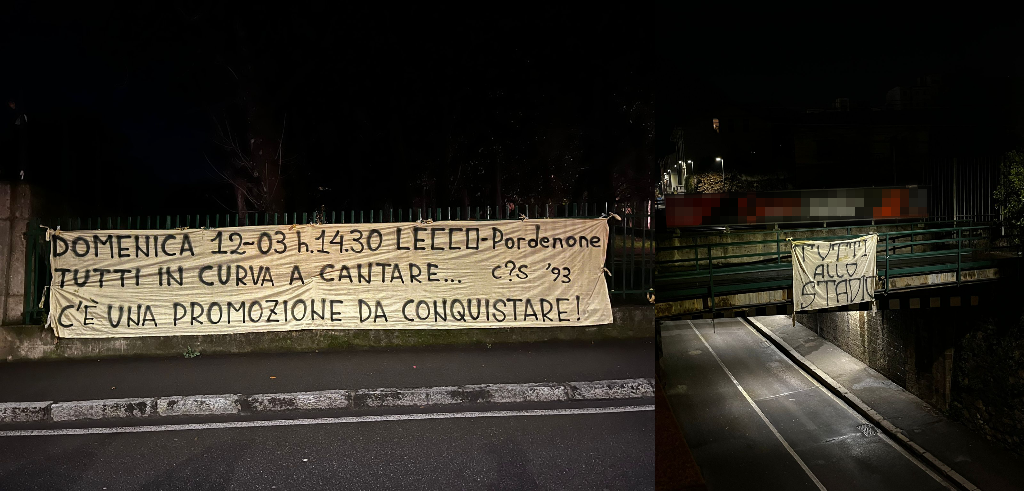 DOMENICA 12-03 h.14.30 LECCO-Pordenone
TUTTI IN CURVA A CANTARE... C?S '93
C'È UNA PROMOZIONE DA CONQUISTARE!
TUTTI
ALLO
STADIO